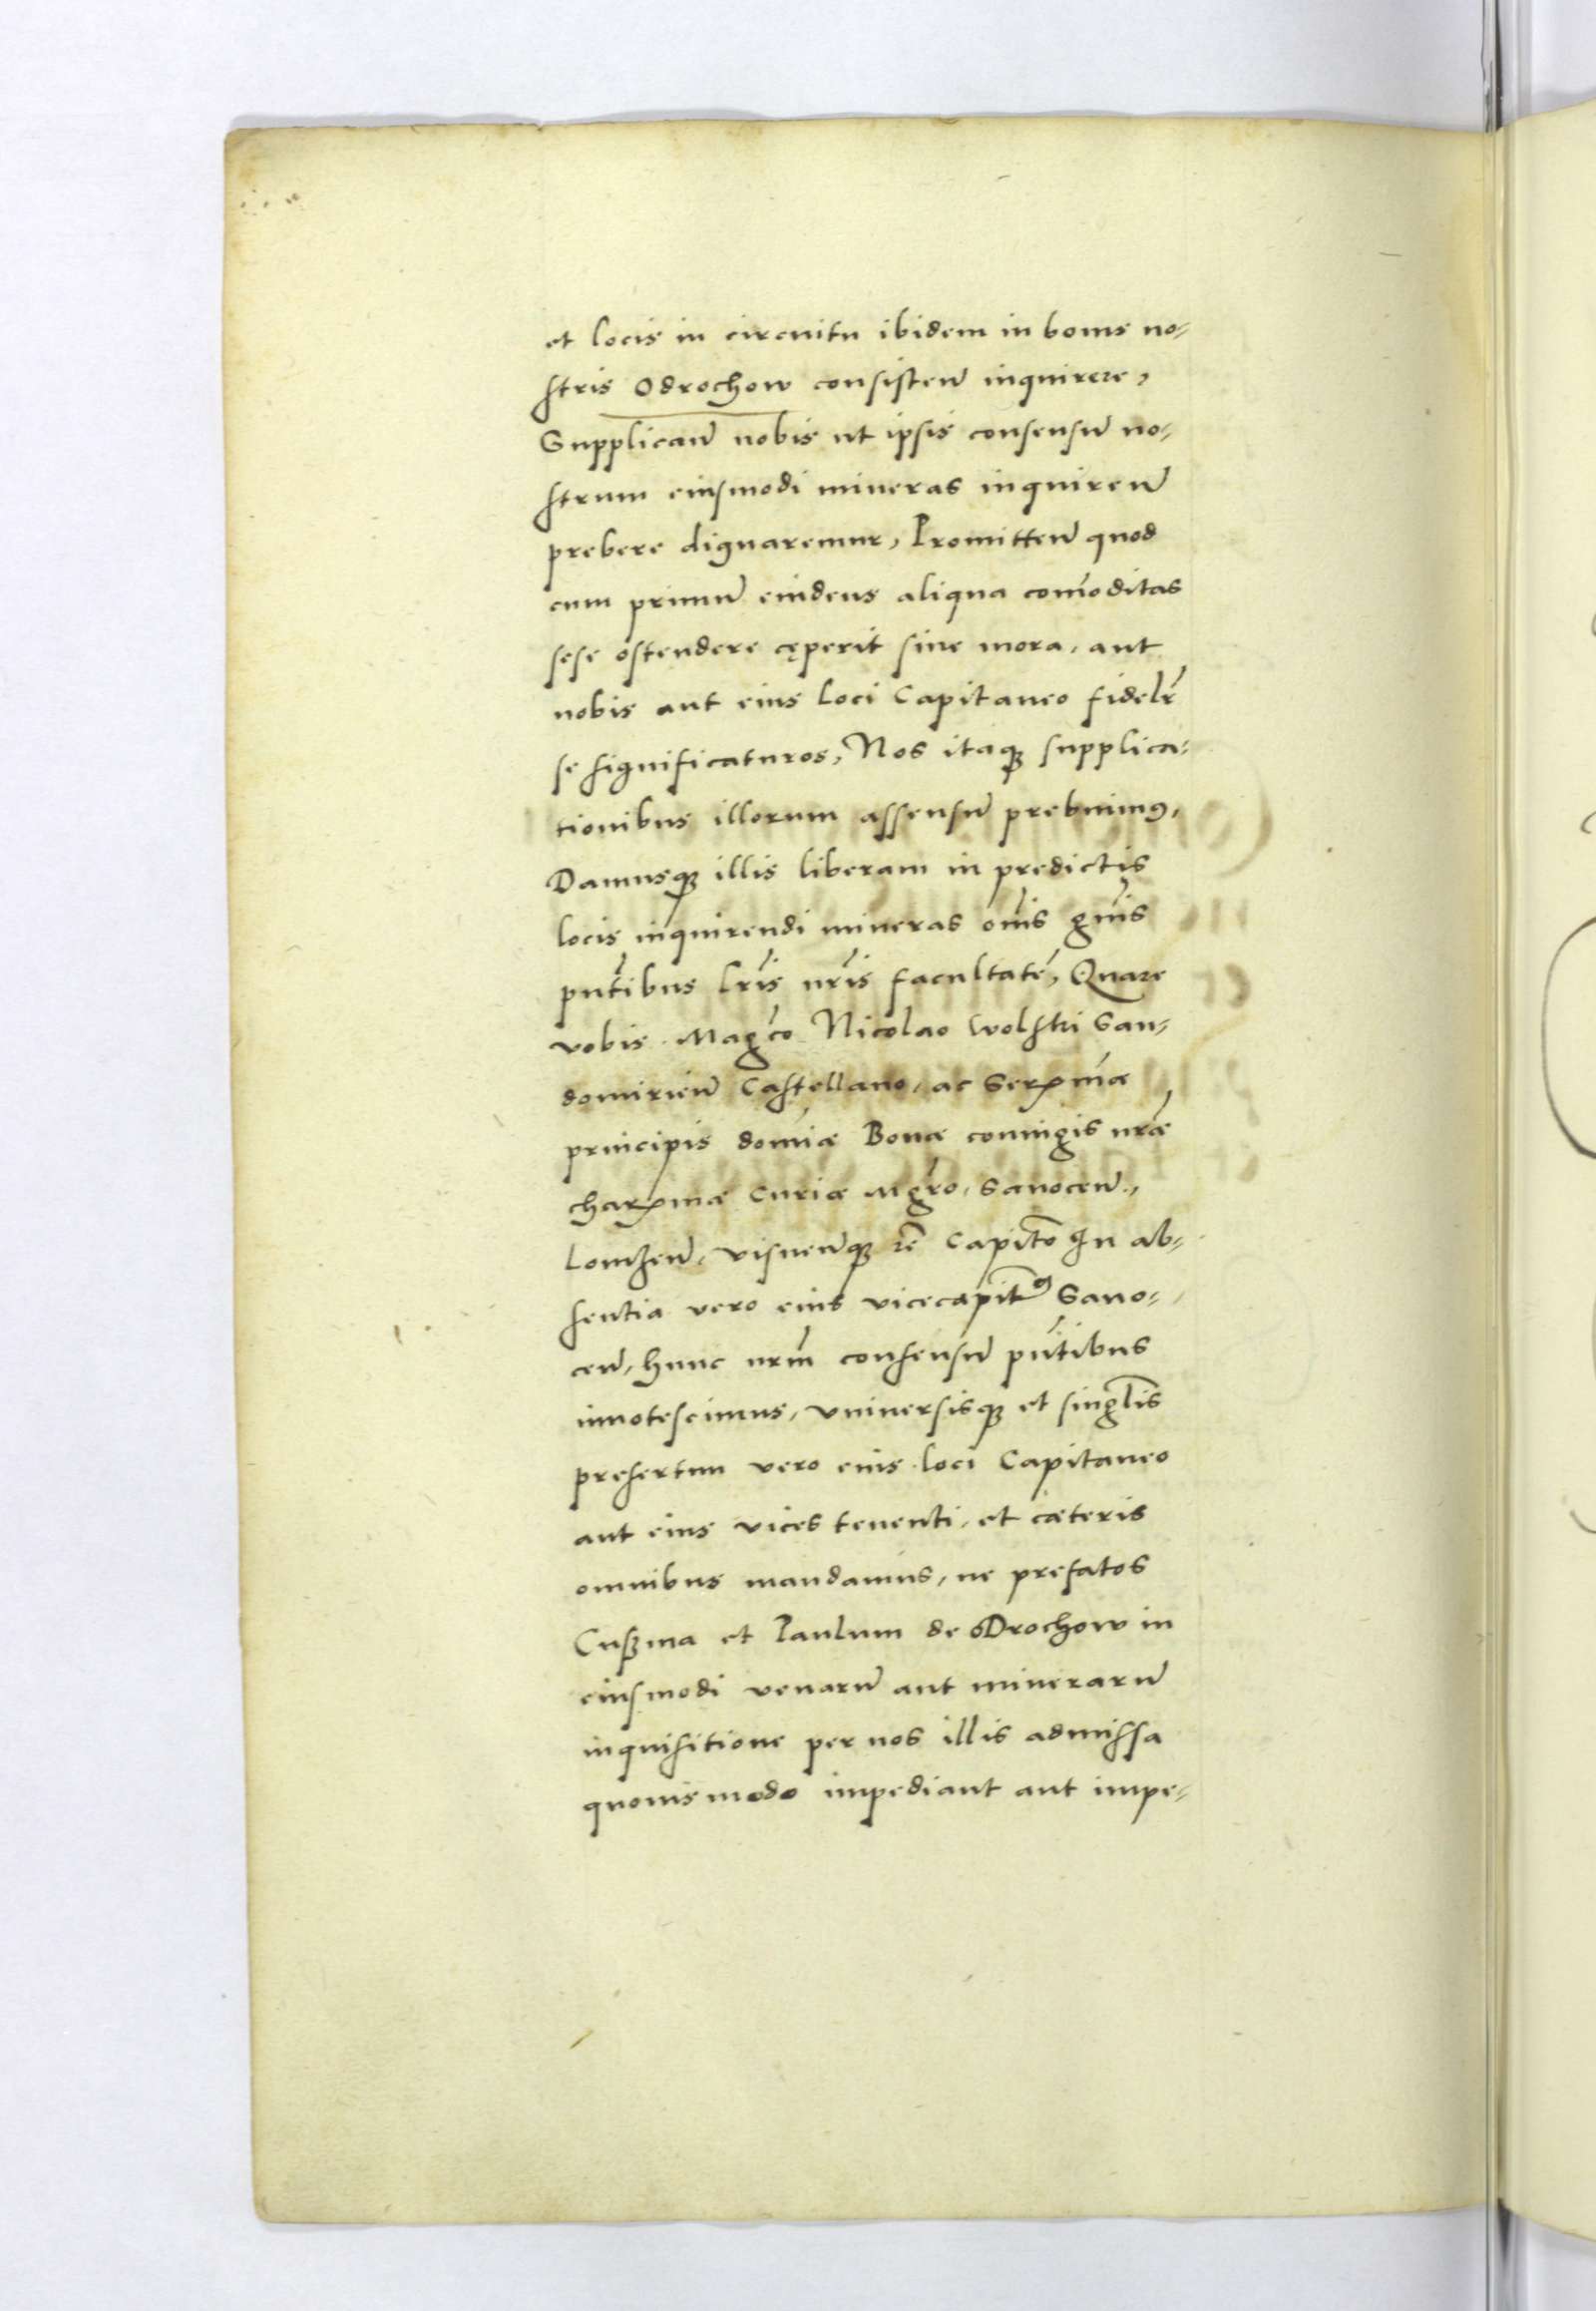 et locis in circuitu ibidem in bonis no-
stris Odrochow consisteñ inquirere,
Supplicañ nobis ut ipsis consensũ no-
strum eiusmodi mineras inquireñ
prebere dignaremur, Promitteñ quod
cum primũ eiudens aliqua com̃oditas
sese ostendere cęperit sine mora, aut
nobis aut eius loci Capitaneo fidelr̃
se significaturos, Nos itaqꝫ supplica-
tionibus illorum assensũ prebuimꝰ,
Damusqꝫ illis liberam in predictis
locis inquirendi mineras om̃is gñis
pñtibus lr̃is nr̃is facultatẽ, Quare
vobis Magc̃o Nicolao Wolski San-
domirieñ Castellano, ac Serᵐᵃᵉ
principis domĩæ Bonæ coniugis nr̃æ
charᵐᵃᵉ Curiæ Mgr̃o, Sanoceñ,
Lomzeñ, Visneñqꝫ rẽ Capitõ In ab-
sentia vero eius vicecapitꝰ Sano-
ceñ, hunc nrm̃ consensũ pñtibus
innotescimus, vniuersisqꝫ et singl̃is
presertim vero eius loci Capitaneo
aut eius vices tenenti, et cæteris
omnibus mandamus, ne prefatos
Cuszma et Paulum de Odrochow in
eiusmodi venarũ aut minerarũ
inquisitione per nos illis admissa
quouis modo impediant aut impe-